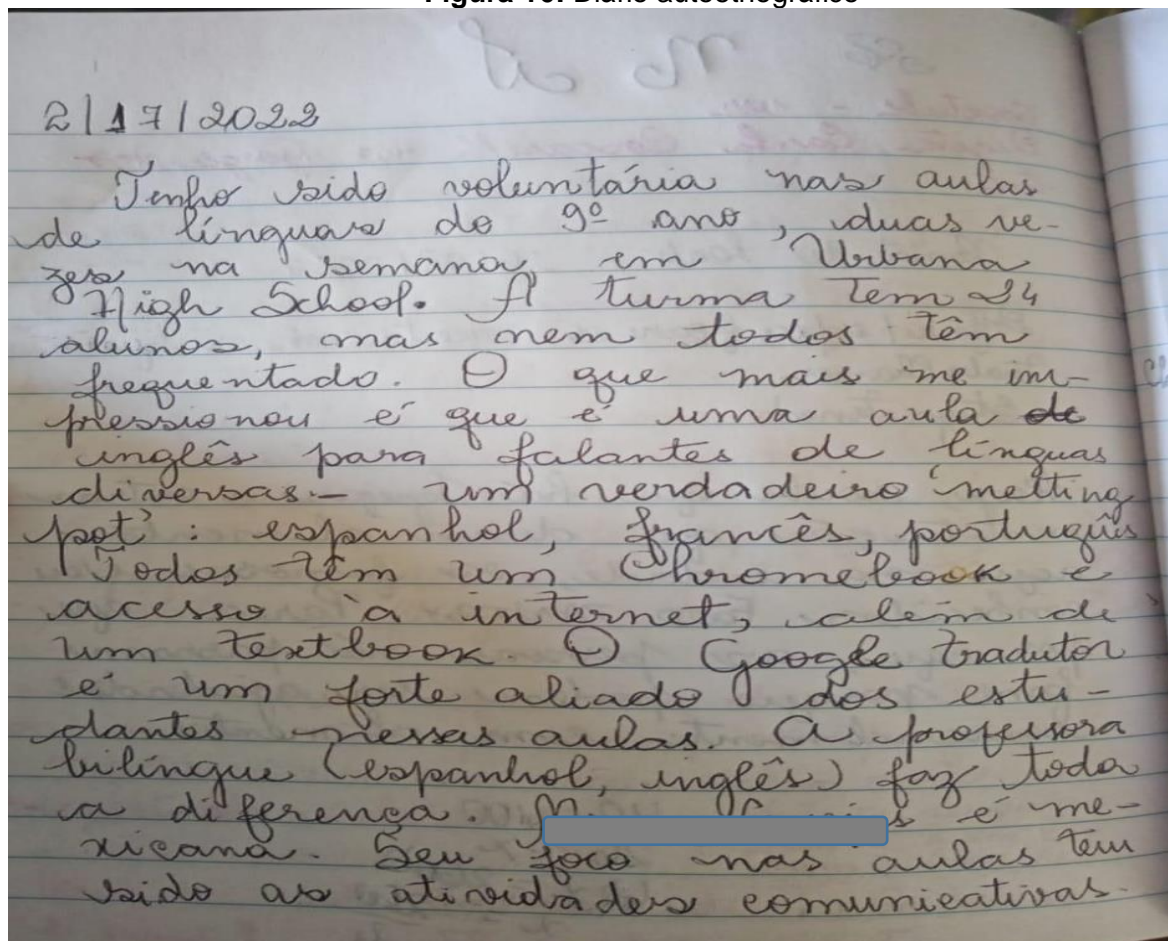 2/17/2022
Tenho sido voluntária nas aulas
de línguas do 9º ano, duas ve-
zes na semana, em Urbana
High School. A turma tem 24
alunos, mas nem todos têm
frequentado. O que mais me im-
pressionou é que é uma aula de
inglês para falantes de línguas
diversas - um verdadeiro 'melting
pot': espanhol, francês, português
Todos têm um Chromebook e
acesso à internet, além de
um textbook. O Google tradutor
é um forte aliado dos estu-
dantes nessas aulas. A professora
bilíngue (espanhol, inglês) faz toda
a diferença. é me-
xicana. Seu foco nas aulas tem
sido as atividades comunicativas.